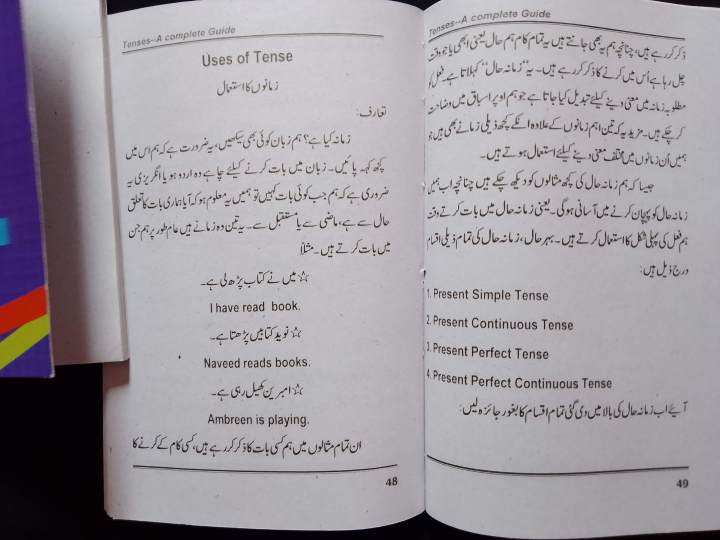 Tenses--A complete Guide
Uses of Tense
زمانوں کا استعمال
تعارف:
زمانہ کیا ہے؟ ہم زبان کوئی بھی سیکھیں، یہ ضرورت ہے کہ ہم اس میں
کچھ کہہ پائیں۔ زبان میں بات کرنے کیلئے چاہے وہ اردو ہو یا انگریزی یہ
ضروری ہے کہ ہم جب کوئی بات کہیں تو ہمیں یہ معلوم ہو کہ آیا ہماری بات کا تعلق
حال سے ہے، ماضی سے یا مستقبل سے۔ یہ تین وہ زمانے ہیں عام طور پر ہم جن
میں بات کرتے ہیں۔ مثلاً
☆ میں نے کتاب پڑھ لی ہے۔
I have read book.
☆ نوید کتابیں پڑھتا ہے۔
Naveed reads books.
☆ امبرین کھیل رہی ہے۔
Ambreen is playing.
ان تمام مثالوں میں ہم کسی بات کا ذکر کر رہے ہیں، کسی کام کے کرنے کا
48
Tenses--A complete Guide
ذکر کر رہے ہیں، چنانچہ ہم یہ بھی جانتے ہیں یہ تمام کام ہم حال یعنی ابھی یا جو وقت
چل رہا ہے اُس میں کرنے کا ذکر کر رہے ہیں۔ یہ "زمانہ حال" کہلاتا ہے۔ فعل کو
مطلوبہ زمانہ میں معنی دینے کیلئے تبدیل کیا جاتا ہے جو ہم اوپر اسباق میں وضاحت
کر چکے ہیں۔ مزید یہ کہ تین اہم زمانوں کے علاوہ انکے کچھ ذیلی زمانے بھی ہیں جو
ہمیں اُن زمانوں میں مختلف معنی دینے کیلئے استعمال ہوتے ہیں۔
جیسا کہ ہم زمانہ حال کی کچھ مثالوں کو دیکھ چکے ہیں چنانچہ اب ہمیں
زمانہ حال کو پہچان کرنے میں آسانی ہوگی۔ یعنی زمانہ حال میں بات کرتے وقت
ہم فعل کی پہلی شکل کا استعمال کرتے ہیں۔ بہر حال، زمانہ حال کی تمام ذیلی اقسام
درج ذیل ہیں:
1. Present Simple Tense
2. Present Continuous Tense
3. Present Perfect Tense
4. Present Perfect Continuous Tense
آیئے اب زمانہ حال کی بالا میں دی گئی تمام اقسام کا بغور جائزہ لیں:
49